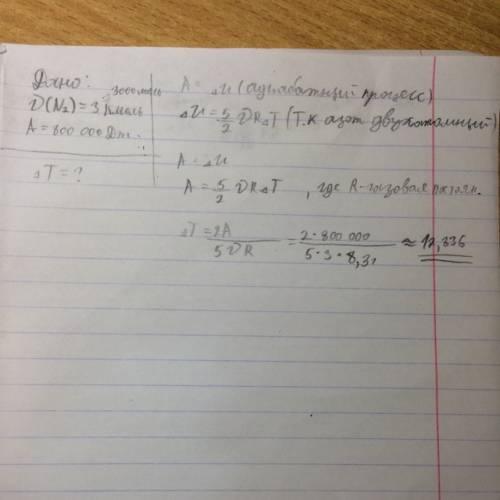 Дано:
3000 моль
ν(N₂) = 3 кмоль
A = 800 000 Дж.
ΔT = ?
A = ΔU (адиабатный процесс)
ΔU = 5/2 νRΔT (Т.к азот двухатомный)
A = ΔU
A = 5/2 νRΔT , где R-газовая постоян.
ΔT = 2A / 5νR = 2·800 000 / 5·3·8,31 ≈ 12,836